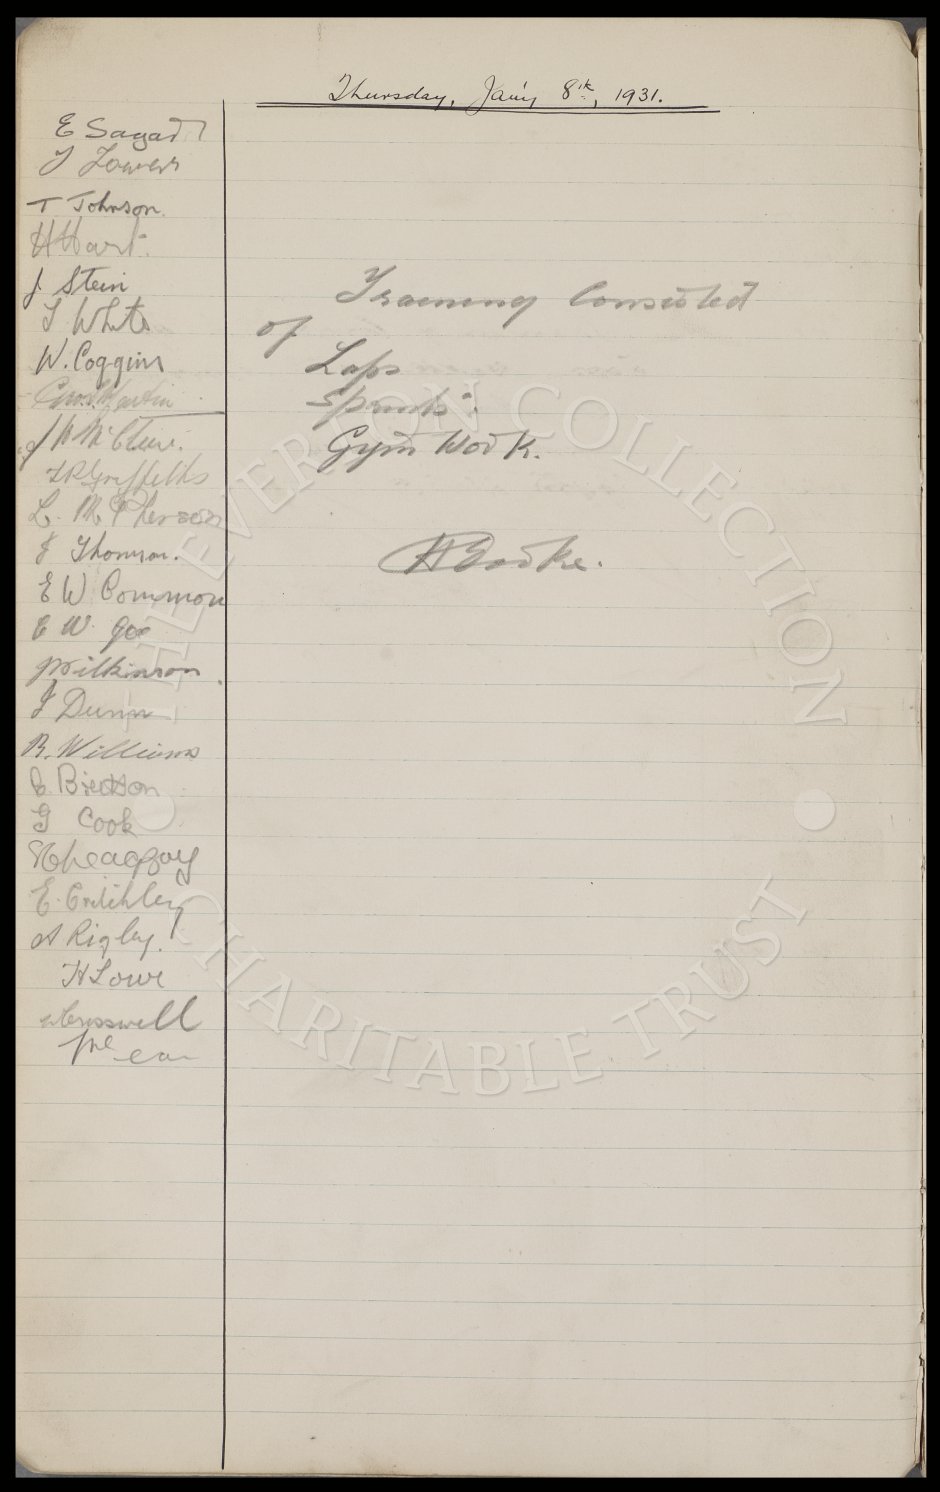 Thursday, Jan'y 8th, 1931.
E Sagar
T Johnson.
H Hart.
J. Stein
T White
W. Coggins
Geo. Martin
J H McClure.
T P Griffiths
L. McPherson
J Thomson.
E W Common
E W Gee
J Wilkinson
J Dunn
B. Williams
G Cook
E. Critchley
A Rigby.
H Lowe
W Cresswell
Training Consisted
of
Laps
Sprints.
Gym Work.
H Cooke.
THE EVERTON COLLECTION
CHARITABLE TRUST